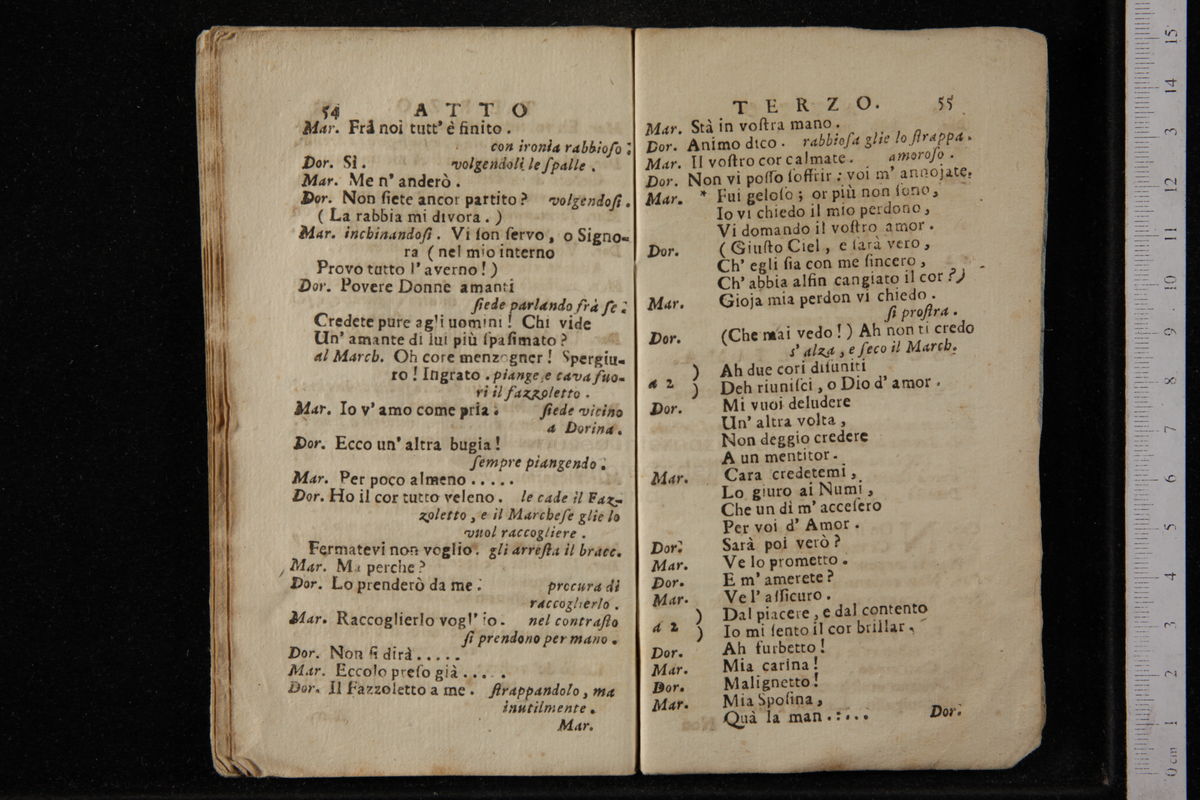 54 ATTO
Mar. Frà noi tutt' è finito .
con ironìa rabbioſo :
Dor. Sì . volgendoli le ſpalle .
Mar. Me n' anderò .
Dor. Non ſiete ancor partito ? volgendoſi .
( La rabbia mi divora . )
Mar. inchinandoſi . Vi ſon ſervo , o Signo-
ra ( nel mio interno
Provo tutto l' averno ! )
Dor. Povere Donne amanti
ſiede parlando frà ſe :
Credete pure agl'i uomini ! Chi vide
Un' amante di lui più ſpaſimato ?
al March. Oh core menzogner ! Spergiu-
ro ! Ingrato . piange , e cava fuo-
ri il fazzoletto .
Mar. Io v' amo come pria . ſiede vicino
a Dorina .
Dor. Ecco un' altra bugia !
ſempre piangendo .
Mar. Per poco almeno . . . . .
Dor. Ho il cor tutto veleno . le cade il Faz-
zoletto , e il Marcheſe glie lo
vuol raccogliere .
Fermatevi non voglio . gli arreſta il bracc.
Mar. Ma perche ?
Dor. Lo prenderò da me . procura di
raccoglierlo .
Mar. Raccoglierlo vogl' io . nel contraſto
ſi prendono per mano .
Dor. Non ſi dirà . . . . .
Mar. Eccolo preſo già . . . . .
Dor. Il Fazzoletto a me . ſtrappandolo , ma
inutilmente .
Mar.
TERZO. 55
Mar. Stà in voſtra mano .
Dor. Animo dico . rabbioſa glie lo ſtrappa .
Mar. Il voſtro cor calmate . amoroſo .
Dor. Non vi poſſo ſoffrir : voi m' annojate.
Mar. * Fui geloſo ; or più non ſono ,
Io vi chiedo il mio perdono ,
Vi domando il voſtro amor .
Dor. ( Giuſto Ciel , e ſarà vero ,
Ch' egli ſia con me ſincero ,
Ch' abbia alfin cangiato il cor ? )
Mar. Gioja mia perdon vi chiedo .
ſi proſtra .
Dor. (Che mai vedo ! ) Ah non ti credo
s' alza , e ſeco il March.
a 2 ) Ah due cori diſuniti
) Deh riuniſci , o Dio d' amor .
Dor. Mi vuoi deludere
Un' altra volta ,
Non deggio credere
A un mentitor .
Mar. Cara credetemi ,
Lo giuro ai Numi ,
Che un dì m' acceſero
Per voi d' Amor .
Dor. Sarà poi verò ?
Mar. Ve lo prometto .
Dor. E m' amerete ?
Mar. Ve l' aſſicuro .
a 2 ) Dal piacere , e dal contento
) Io mi ſento il cor brillar .
Dor. Ah furbetto !
Mar. Mia carina !
Dor. Malignetto !
Mar. Mia Spoſina ,
Quà la man . : . . .
Dor.
0 cm 1 2 3 4 5 6 7 8 9 10 11 12 13 14 15